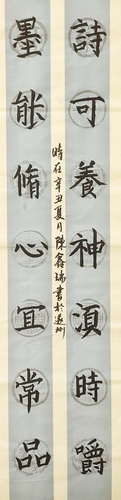 詩可養神湏時嚼
墨能脩心宜常品
時在辛丑夏月陳鑫瑞書於州